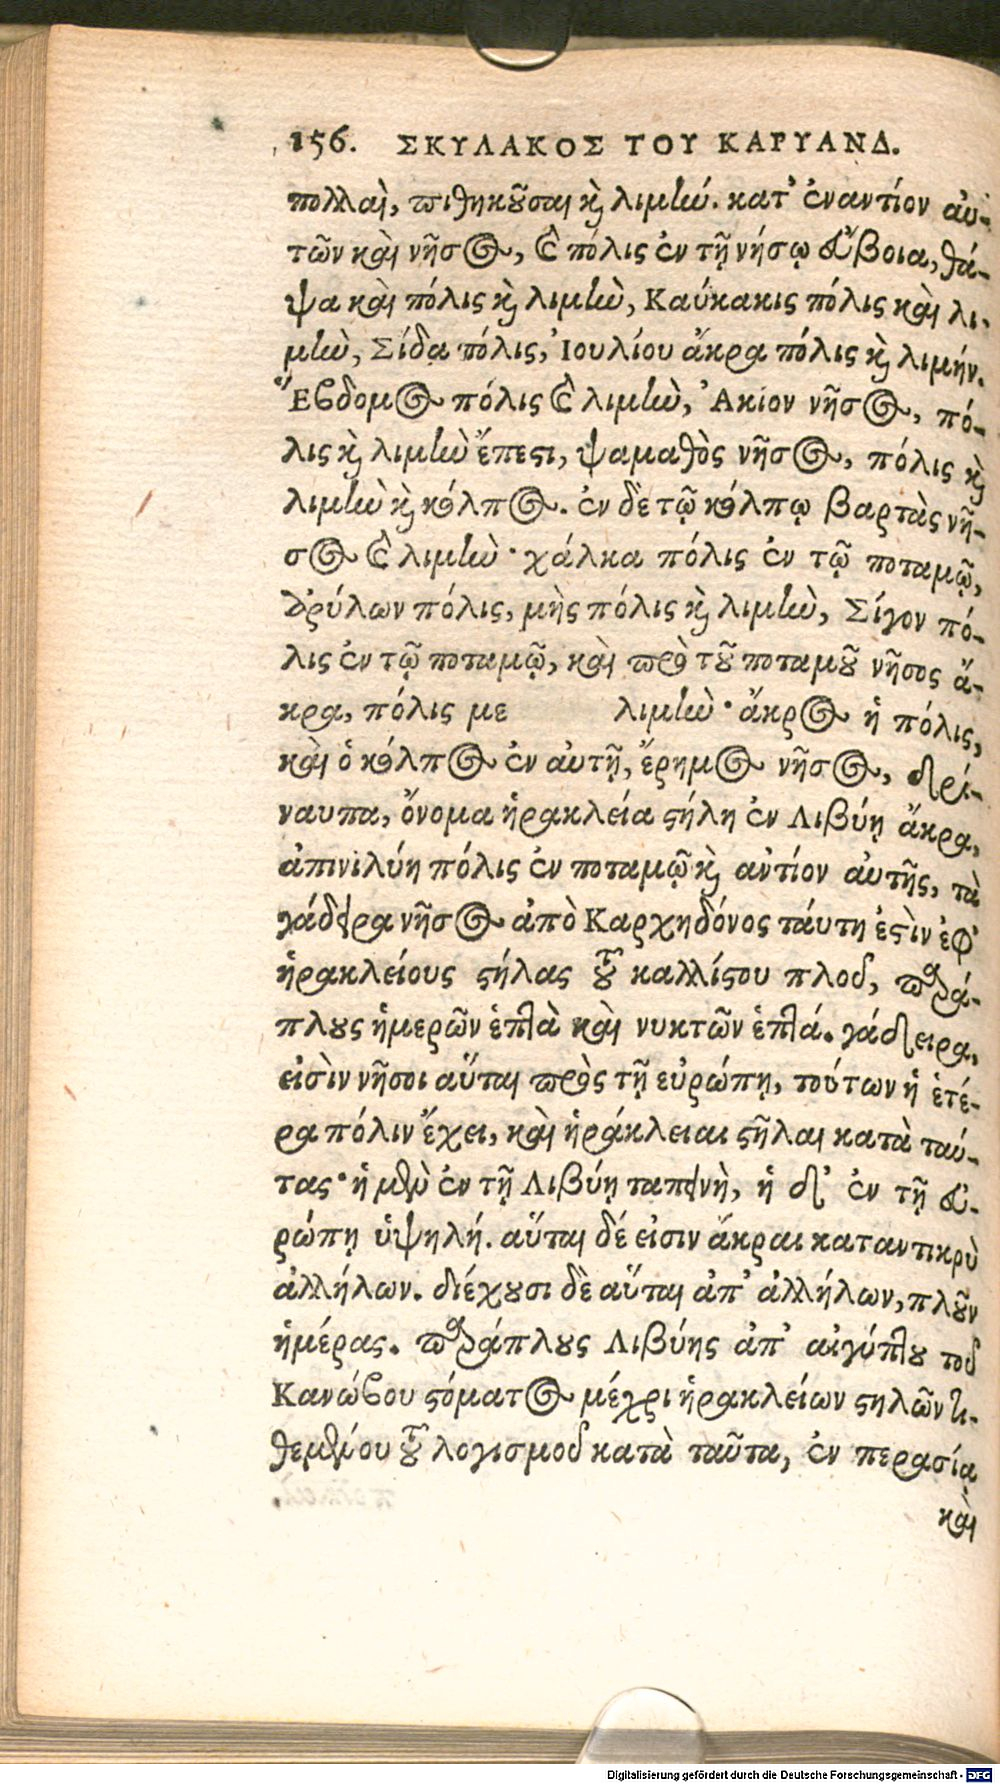 156. ΣΚΥΛΑΚΟΣ ΤΟΥ ΚΑΡΥΑΝΔ.
πολλαὶ, πιθηκοῦσαι καὶ λιμὴν. κατ' ἐναντίον αὐ-
τῶν καὶ νῆσος, καὶ πόλις ἐν τῇ νήσῳ εὔβοια, θά-
ψα καὶ πόλις καὶ λιμὴν, Καύκακις πόλις καὶ λι-
μὴν, Σίδα πόλις, Ἰουλίου ἄκρα πόλις καὶ λιμήν.
Ἕβδομος πόλις καὶ λιμὴν, Ἀκίον νῆσος, πό-
λις καὶ λιμὴν ἔπεστι, ψαμαθὸς νῆσος, πόλις καὶ
λιμὴν καὶ κόλπος. ἐν δὲ τῷ κόλπῳ βαρτὰς νῆ-
σος καὶ λιμὴν· χάλκα πόλις ἐν τῷ ποταμῷ,
ἀρύλων πόλις, μὴς πόλις καὶ λιμὴν, Σίγον πό-
λις ἐν τῷ ποταμῷ, καὶ πρὸ τοῦ ποταμοῦ νῆσος ἄ-
κρα, πόλις με λιμὴν· ἄκρος ἡ πόλις,
καὶ ὁ κόλπος ἐν αὐτῇ, ἔρημος νῆσος, δρί-
ναυπα, ὄνομα ἡρακλεία στήλη ἐν Λιβύῃ ἄκρα,
ἀπινιλύη πόλις ἐν ποταμῷ καὶ αὐτίον αὐτῆς, τὰ
γάδειρα νῆσος ἀπὸ Καρχηδόνος τάυτη ἐστὶν ἐφ'
ἡρακλείους στήλας τοῦ καλλίστου πλοῦ, παρά-
πλους ἡμερῶν ἑπτὰ καὶ νυκτῶν ἑπτά. γάδειρα,
εἰσὶν νῆσοι αὗται πρὸς τῇ εὐρώπῃ, τούτων ἡ ἑτέ-
ρα πόλιν ἔχει, καὶ ἡράκλειαι στῆλαι κατὰ ταύ-
τας· ἡ μὲν ἐν τῇ Λιβύῃ ταπεινὴ, ἡ δ' ἐν τῇ εὐ-
ρώπῃ ὑψηλή. αὗται δέ εἰσιν ἄκραι καταντικρὺ
ἀλλήλων. διέχουσι δὲ αὗται ἀπ' ἀλλήλων, πλοῦν
ἡμέρας. παράπλους Λιβύης ἀπ' αἰγύπτου τοῦ
Κανώβου στόματος μέχρι ἡρακλείων στηλῶν τι-
θεμένου τοῦ λογισμοῦ κατὰ ταῦτα, ἐν περασίᾳ
καὶ
Digitalisierung gefördert durch die Deutsche Forschungsgemeinschaft - DFG